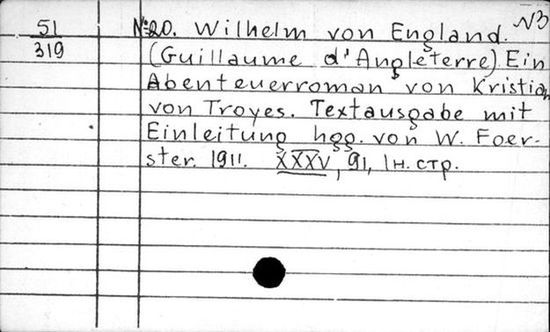 51 №20. Wilhelm von England. N3
319 (Guillaume d'Angleterre) Ein
Abenteuerroman von Kristian
von Troyes. Textausgabe mit
Einleitung hgg. von W. Foer-
ster. 1911. XXXV, 91, 1 н. стр.